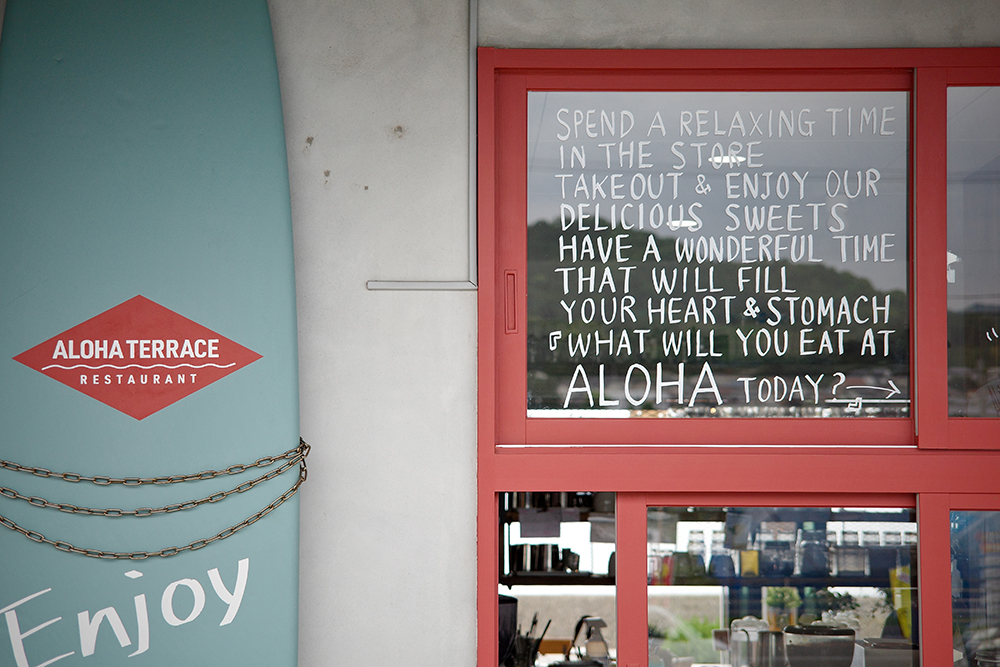 ALOHA TERRACE
RESTAURANT
Enjoy
SPEND A RELAXING TIME
IN THE STORE
TAKEOUT & ENJOY OUR
DELICIOUS SWEETS
HAVE A WONDERFUL TIME
THAT WILL FILL
YOUR HEART & STOMACH
『WHAT WILL YOU EAT AT
ALOHA TODAY?』